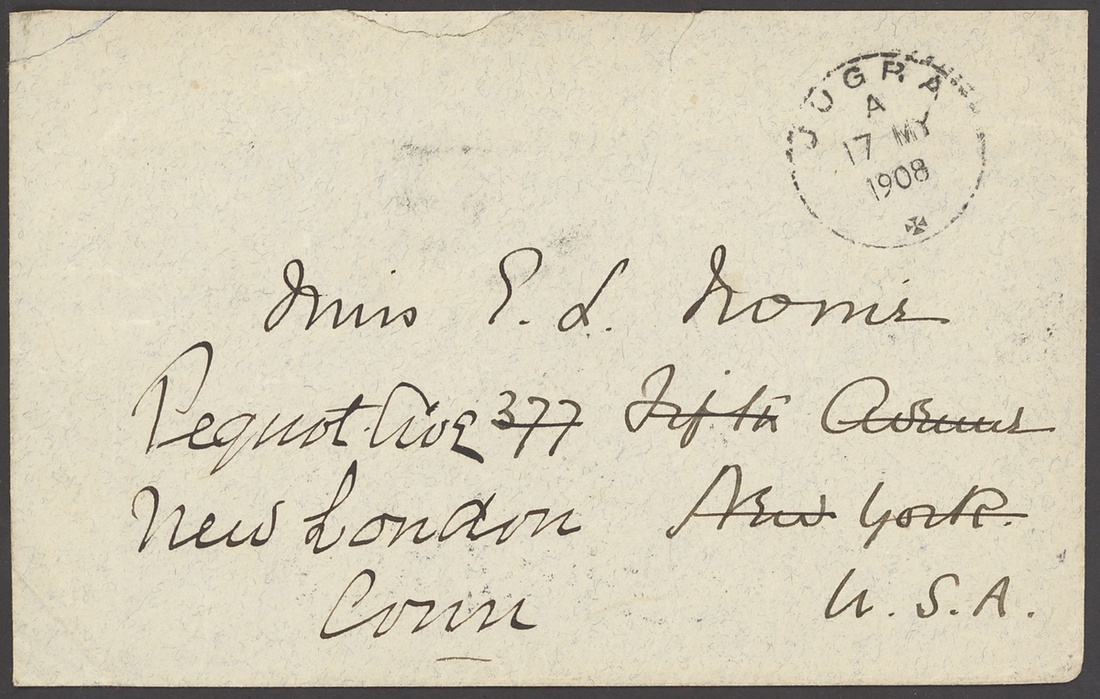 JUGRA
A
17 MY
1908
Miss E. L. Norris
Pequot Ave 377 Fifth Avenue
New London New York.
Conn U.S.A.